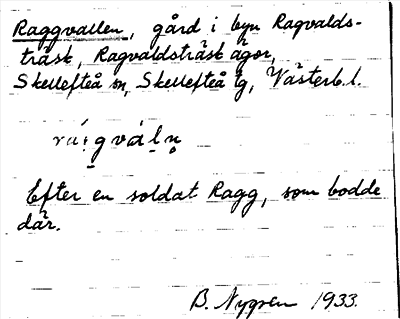 Raggvallen, gård i byn Ragvalds-
träsk, Ragvaldsträsk ägor,
Skellefteå sn, Skellefteå tg, Västerb. l.
Efter en soldat Ragg, som bodde
där.
B. Nygren 1933.